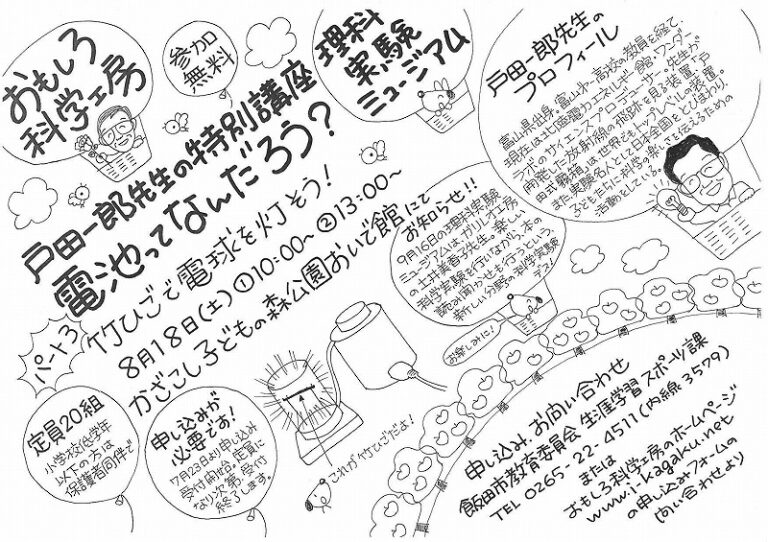 おもしろ
科学工房
参加
無料
理科
実験
ミュージアム
戸田一郎先生の
プロフィール
富山県出身。富山第一高校の教員を経て、
現在は北陸電力エネルギー館「ワンダー
ラボ」のサイエンスプロデューサー。先生が
開発した放射線の飛跡を見る装置「戸
田式霧箱」は、世界でもトップレベルの装置。
また、実験名人として日本全国をとびまわり、
子どもたちに科学の楽しさを伝えるための
活動をしている。!!
戸田一郎先生の特別講座
電池ってなんだろう?
竹ひごで電球を灯そう!
8月18日(土) ①10:00~ ②13:00~
かざこし子どもの森公園おいで館にて
パート3
お知らせ!!
9月16日の理科実験
ミュージアムは、ガリレオ工房
の土井美香子先生。楽しい
科学実験を行いながら、本の
読み聞かせも行うという、
新しい分野の科学実験
デス!
お楽しみに!
定員20組
小学校低学年
以下の方は
保護者同伴で
申し込みが
必要です!
7月23日より申し込み
受付開始。定員に
なり次第、受付
終了します。
これが竹ひごだよ!
申し込み、お問い合わせ
飯田市教育委員会 生涯学習スポーツ課
TEL 0265-22-4511(内線3579)
または
おもしろ科学工房のホームページ
www.i-kagaku.net
の申し込みフォームの
問い合わせより